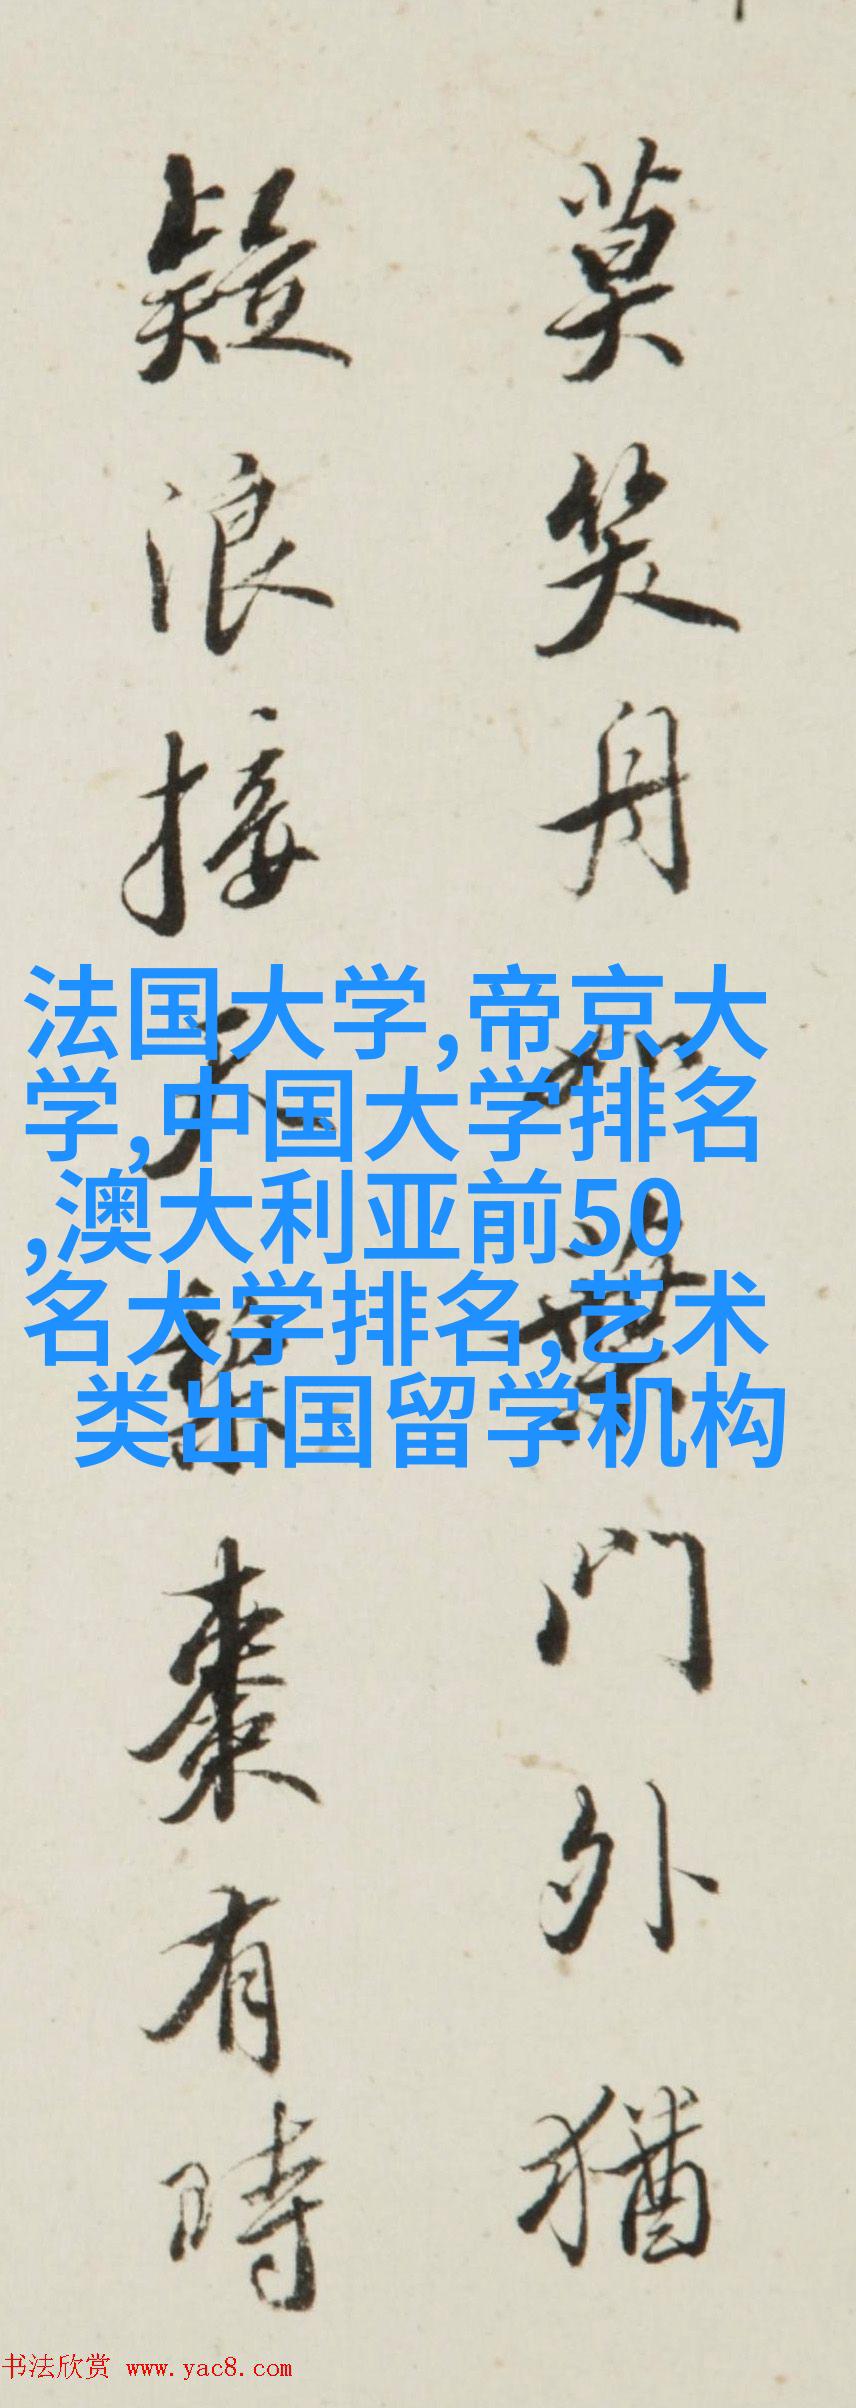 莫笑舟如葉門外猶
疑浪接天梨棗有時
法国大学,帝京大
学,中国大学排名
,澳大利亚前50
名大学排名,艺术
类出国留学机构
书法欣赏 www.yac8.com